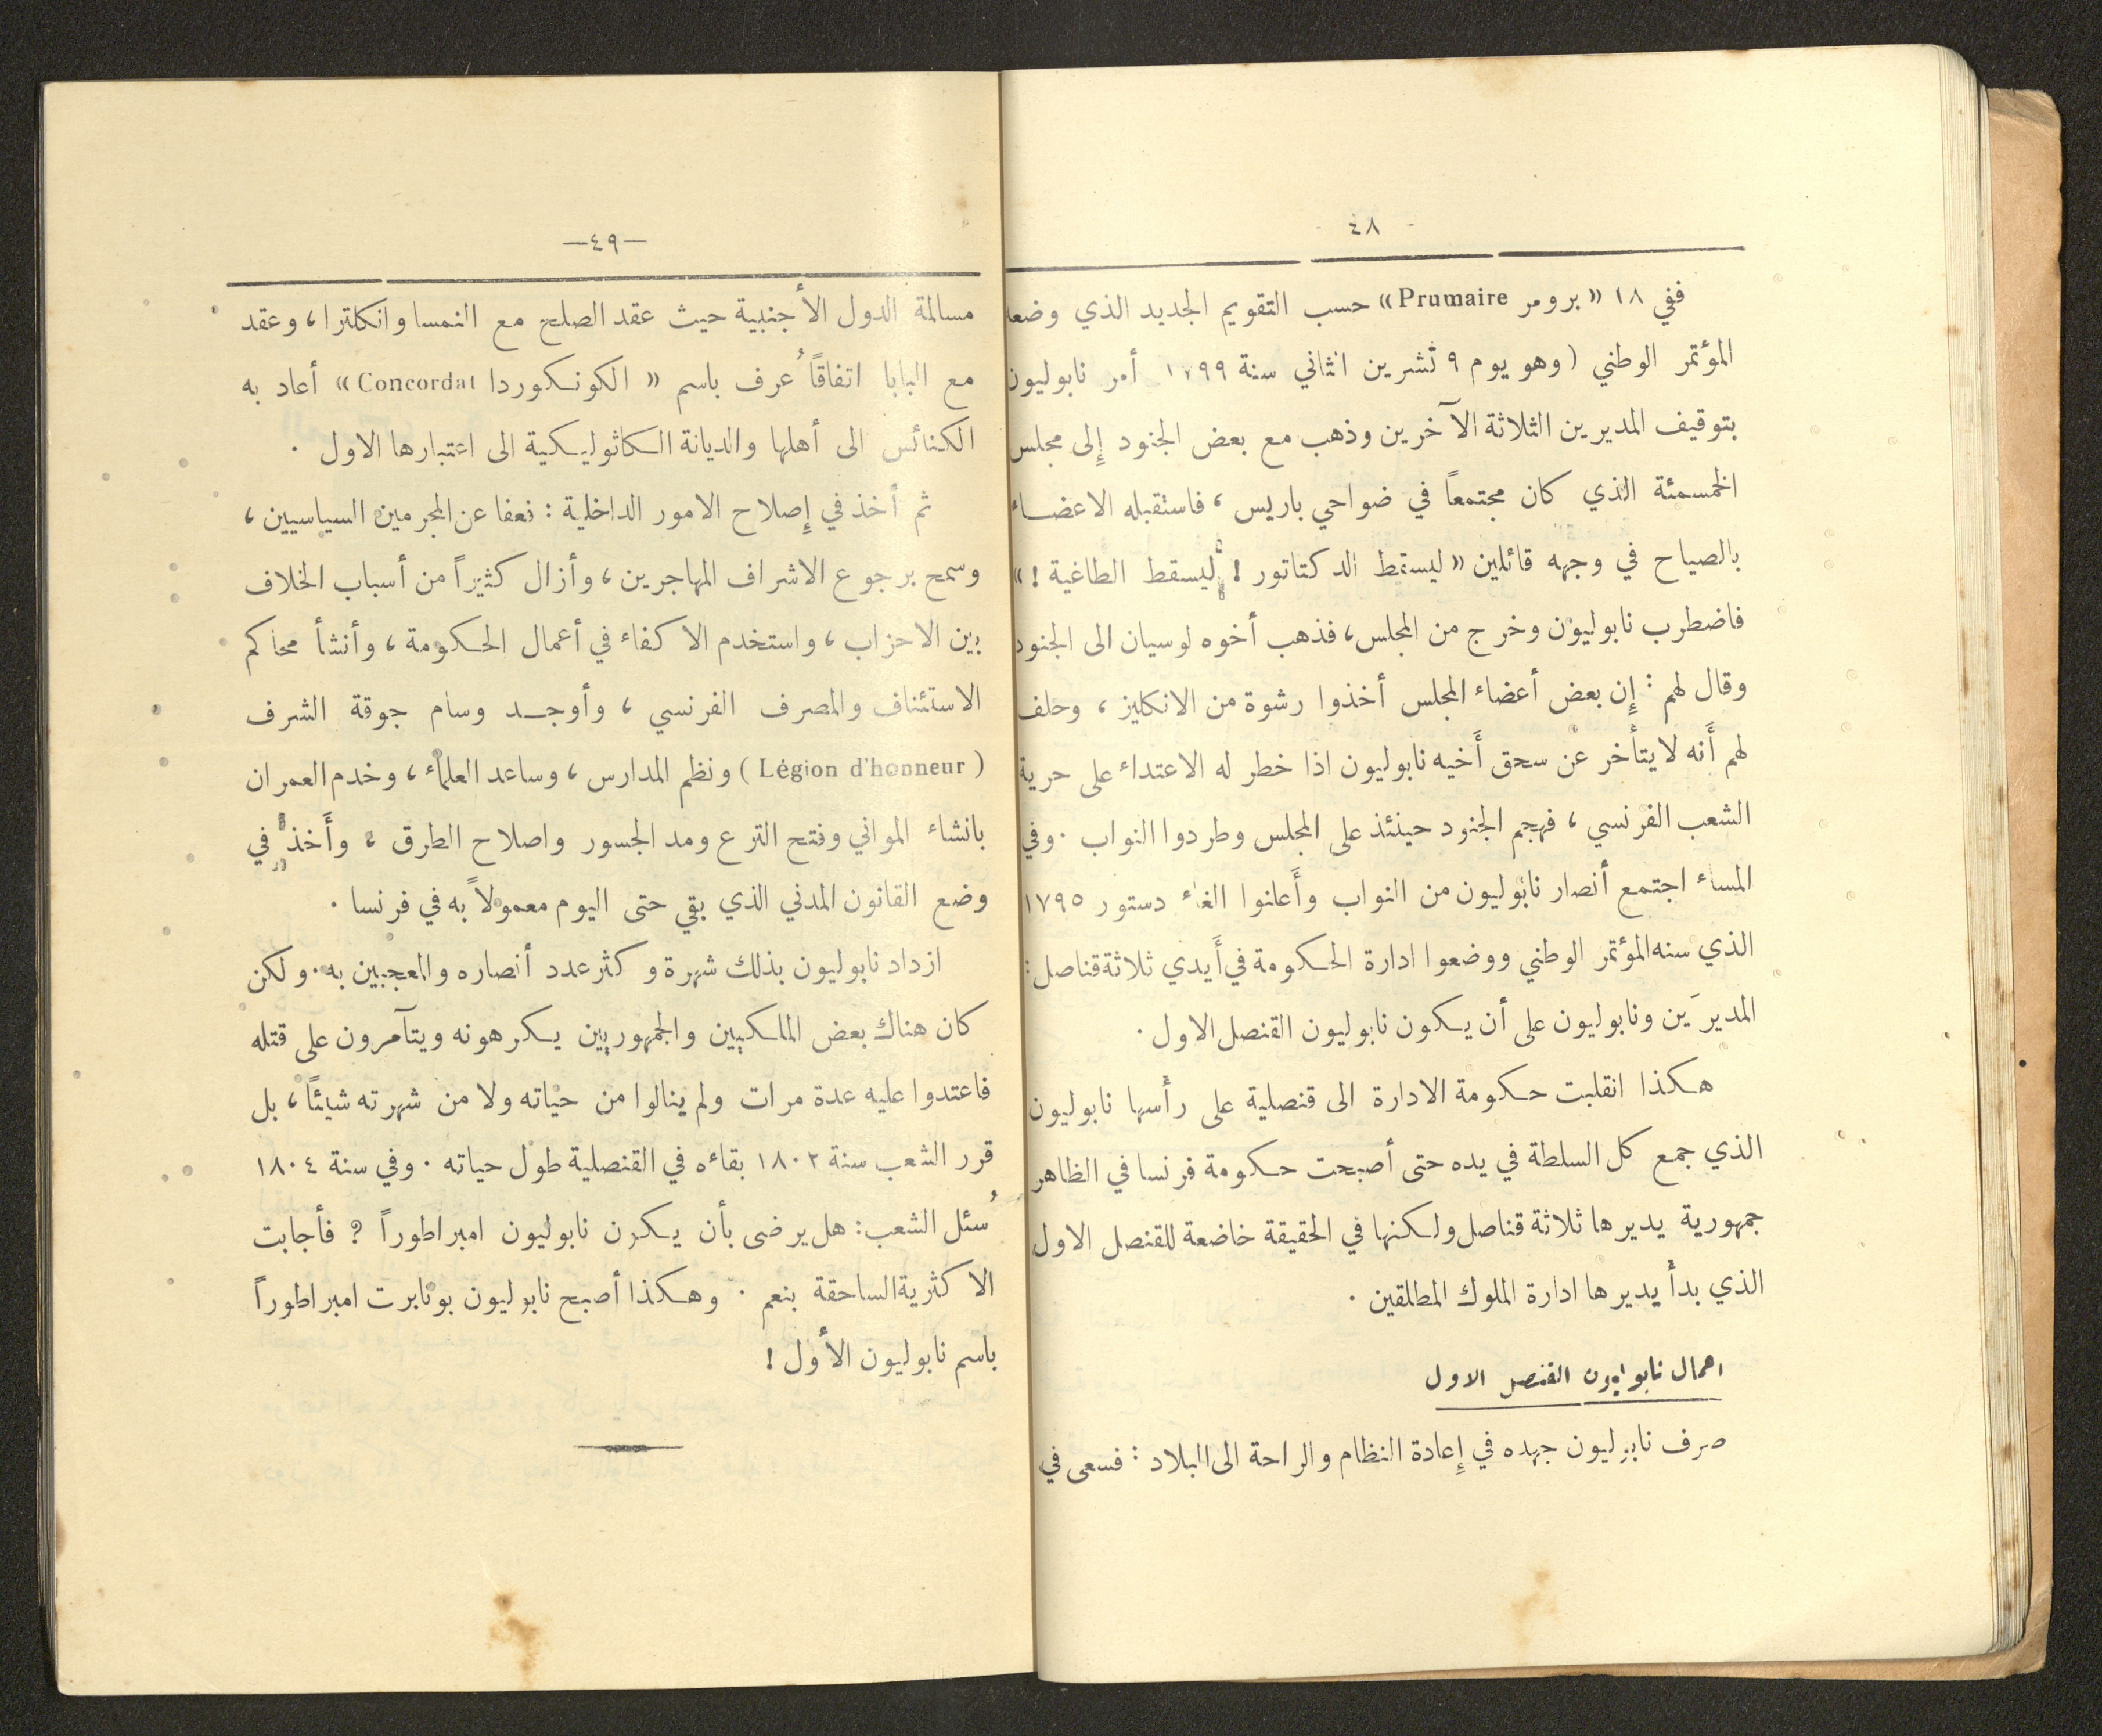 ٤٨
ففي ١٨ «برومر Prumaire» حسب التقويم الجديد الذي وضعه
المؤتمر الوطني (وهو يوم ٩ تشرين الثاني سنة ١٧٩٩ أمر نابوليون
بتوقيف المديرين الثلاثة الآخرين وذهب مع بعض الجنود إِلى مجلس
الخمسمئة الذي كان مجتمعاً في ضواحي باريس ، فاستقبله الاعضاء
بالصياح في وجهه قائلين «ليسقط الدكتاتور ! ليسقط الطاغية ! »
فاضطرب نابوليون وخرج من المجلس، فذهب أخوه لوسيان الى الجنود
وقال لهم : إِن بعض أعضاء المجلس أخذوا رشوة من الانكليز ، وحلف
لهم أَنه لا يتأخر عن سحق أَخيه نابوليون اذا خطر له الاعتداء على حرية
الشعب الفرنسي ، فهجم الجنود حينئذ على المجلس وطردوا النواب . وفي
المساء اجتمع أنصار نابوليون من النواب وأَعلنوا الغاء دستور ١٧٩٥
الذي سنه المؤتمر الوطني ووضعوا ادارة الحكومة في أَيدي ثلاثة قناصل :
المديرَين ونابوليون على أن يكون نابوليون القنصل الاول .
هكذا انقلبت حكومة الادارة الى قنصلية على رأسها نابوليون
الذي جمع كل السلطة في يده حتى أصبحت حكومة فرنسا في الظاهر
جمهورية يديرها ثلاثة قناصل ولكنها في الحقيقة خاضعة للقنصل الاول
الذي بدأ يديرها ادارة الملوك المطلقين .
اعمال نابوليون القنصل الاول
صرف نابوليون جهده في إِعادة النظام والراحة الى البلاد : فسعى في
—٤٩—
مسالمة الدول الأجنبية حيث عقد الصلح مع النمسا وانكلترا ، وعقد
مع البابا اتفاقاً عُرف باسم « الكونكوردا Concordat » أعاد به
الكنائس الى أهلها والديانة الكاثوليكية الى اعتبارها الاول .
ثم أخذ في إِصلاح الامور الداخلية : فعفا عن المجرمين السياسيين ،
وسمح برجوع الاشراف المهاجرين ، وأزال كثيراً من أسباب الخلاف
بين الاحزاب ، واستخدم الاكفاء في أعمال الحكومة ، وأنشأ محاكم
الاستئناف والمصرف الفرنسي ، وأوجد وسام جوقة الشرف
( Légion d'honneur ) ونظم المدارس ، وساعد العلماء ، وخدم العمران
بانشاء المواني وفتح الترع ومد الجسور واصلاح الطرق ، وأَخذ في
وضع القانون المدني الذي بقي حتى اليوم معمولاً به في فرنسا .
ازداد نابوليون بذلك شهرة وكثر عدد أنصاره والمعجبين به . ولكن
كان هناك بعض الملكيين والجمهوريين يكرهونه ويتآمرون على قتله
فاعتدوا عليه عدة مرات ولم ينالوا من حياته ولا من شهرته شيئاً ، بل
قرر الشعب سنة ١٨٠٢ بقاءه في القنصلية طول حياته . وفي سنة ١٨٠٤
سُئل الشعب : هل يرضى بأن يكون نابوليون امبراطوراً ؟ فأجابت
الاكثرية الساحقة بنعم . وهكذا أصبح نابوليون بونابرت امبراطوراً
باسم نابوليون الأول !